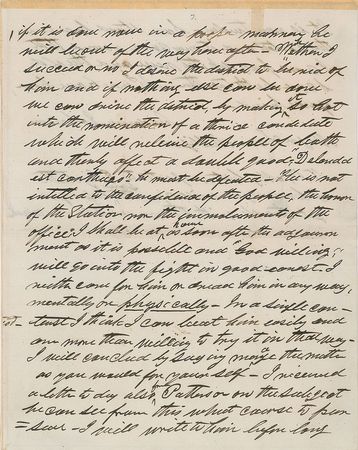 if it is done now in a proper manner he
will be out of the way there after – Whether I
succeed or no I desire the district to be rid of
him and if nothing else can be done
we can divide the district, by making it so hot
into the nomination of a third candidate
which will relieve the people of both
and thereby effect a double good; "Delenda
est Carthago" he must be defeated – He is not
intitled to the confidence of the people, the honor
of the Station nor the emoluments of the
office. I shall be at home as soon after the adjourn
ment as it is possible and "God willing"
will go into the fight in good earnest – I
neither care for him or dread him in any way,
mentally or physically – In a single con-
test – I think I can beat him easily and
am more than willing to try it in that way –
I will conclude by saying manage the matter
as you would for yourself – I received
a letter to day also Patterson on the subject
he can see from this what course to pur
= sue – I will write to him before long